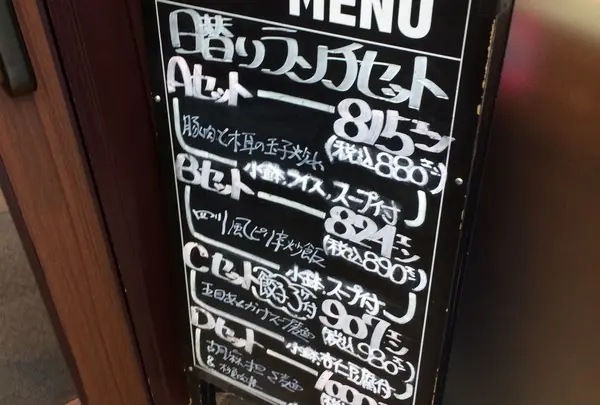 MENU
日替りランチセット
Aセット 815エン
豚肉と木耳の玉子炒め (税込880エン)
小鉢,ライス,スープ付
Bセット 824エン
四川風ピリ辛炒飯 (税込890エン)
小鉢,スープ付
Cセット 餃子3ケ付 907エン
五目あんかけスープ麺 (税込980エン)
小鉢,杏仁豆腐付
Dセット
胡麻担々麺
&